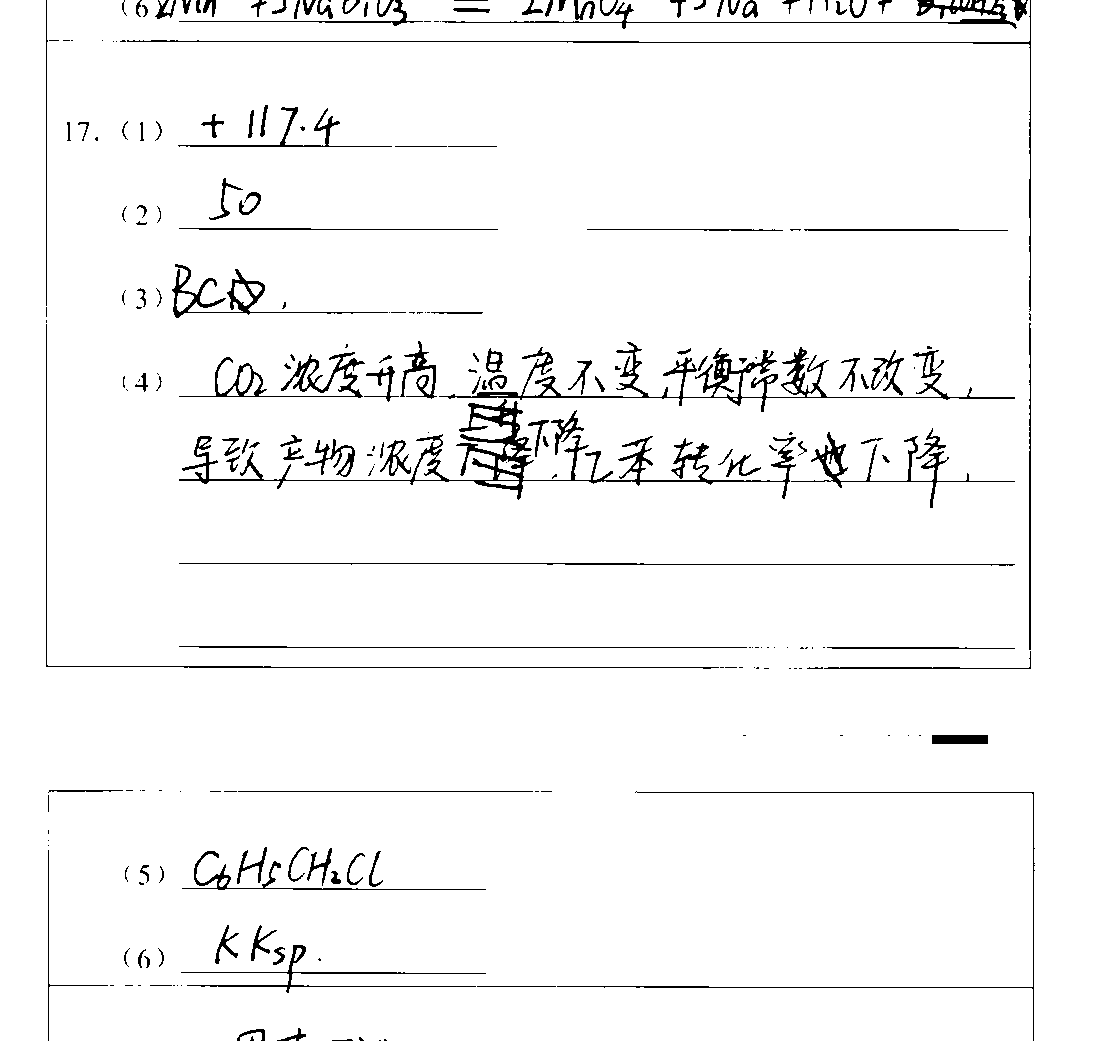 (6) 2Mn + 5NaBiO3 = 2MnO4 + 5Na + H2O +
17. (1) + 117.4
(2) 50
(3) BC
(4) CO2浓度升高,温度不变,平衡常数不改变,
导致产物浓度下降,乙苯转化率也下降,
(5) C6H5CH2Cl
(6) K Ksp.